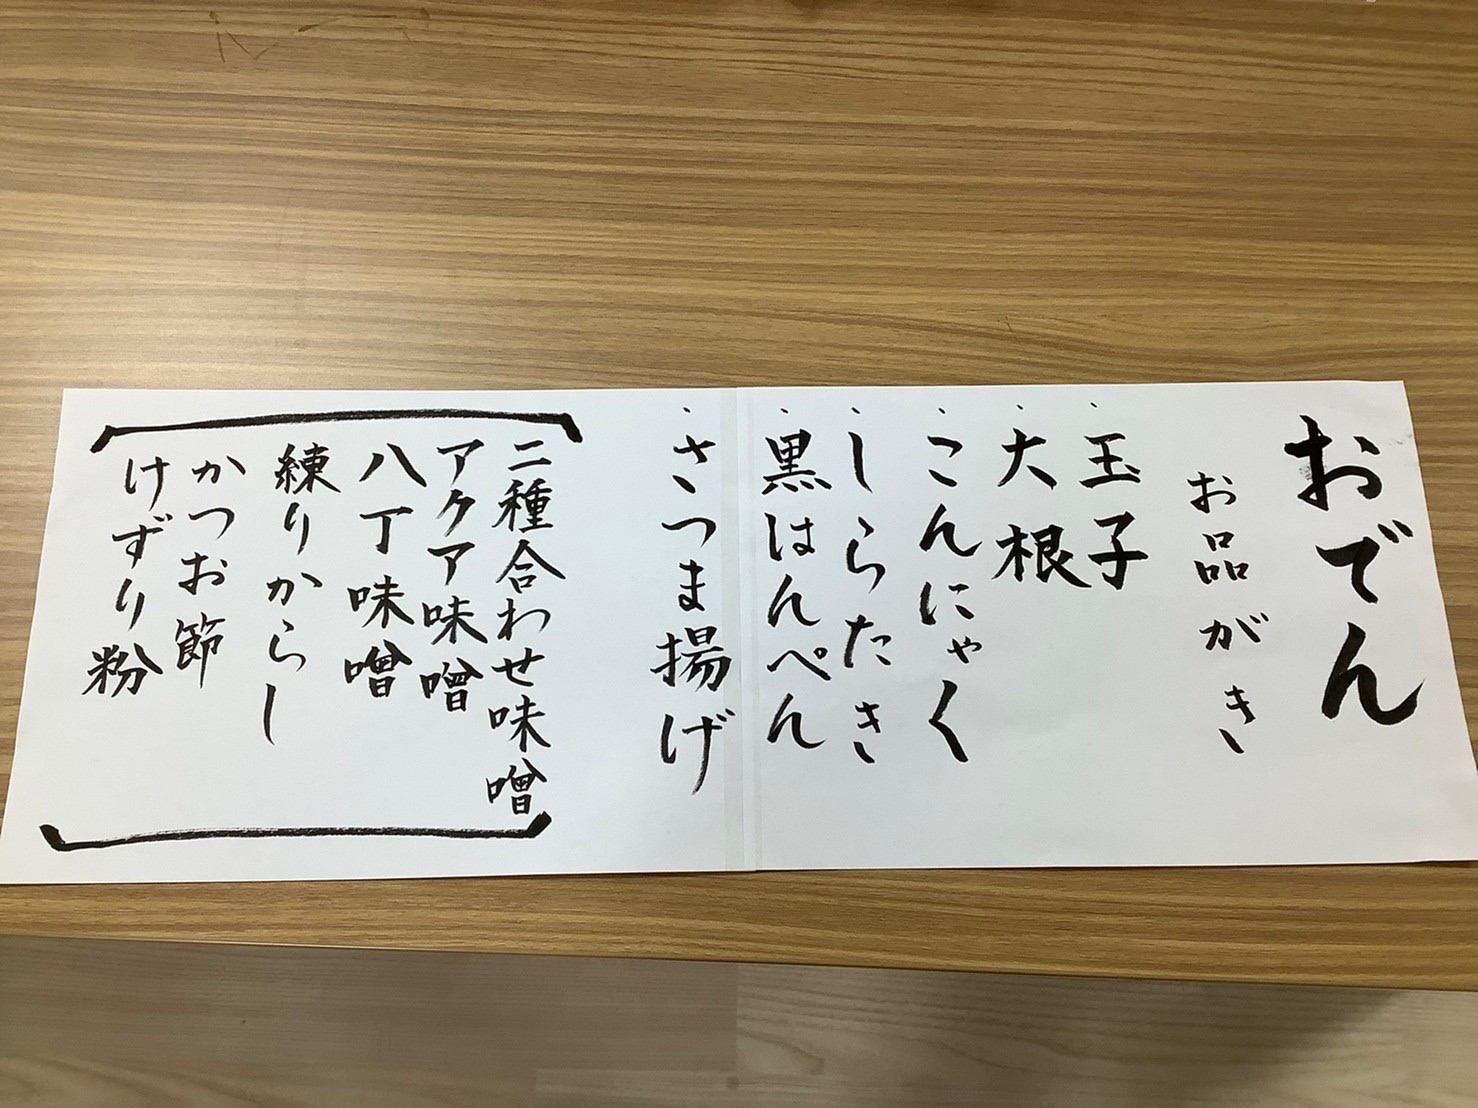 おでん
お品がき
・玉子
・大根
・こんにゃく
・しらたき
・黒はんぺん
・さつま揚げ
二種合わせ味噌
アクア味噌
八丁味噌
練りからし
かつお節
けずり粉